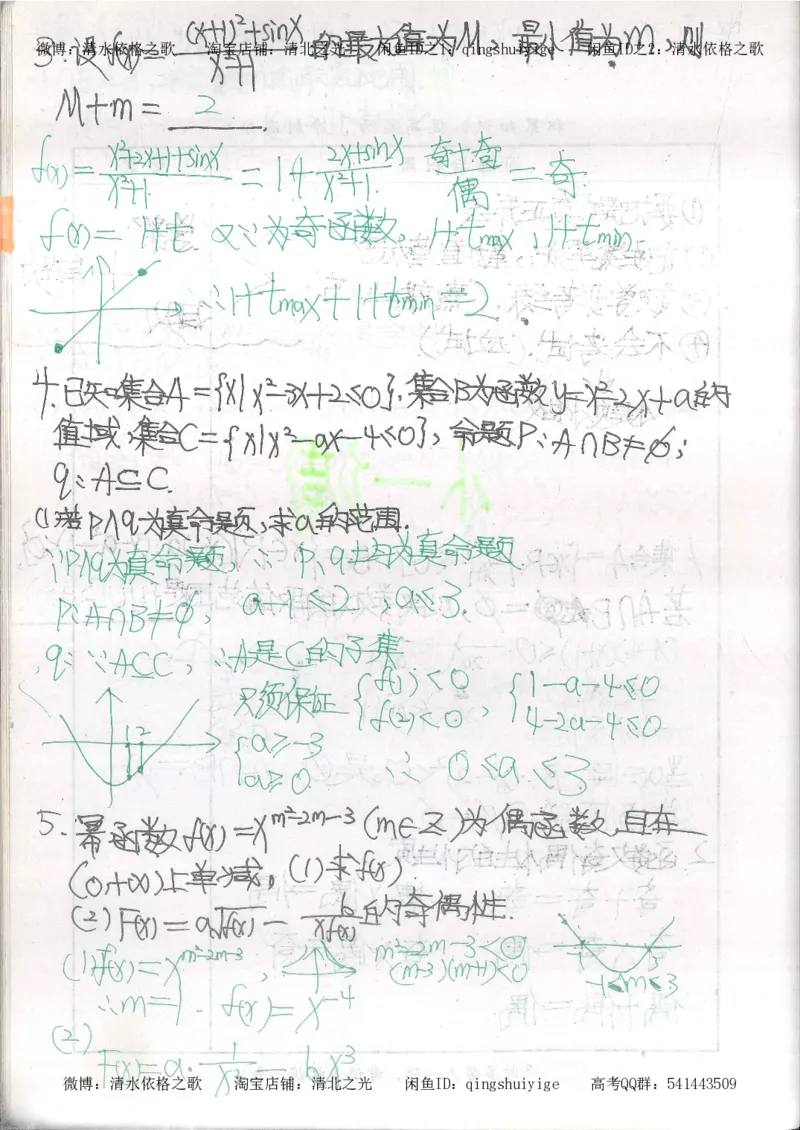 微博：清水依格之歌 淘宝店铺：清北之光 闲鱼ID之1：qingshuiyige 闲鱼ID之2：清水依格之歌
3. 设f(x)=((x+1)²+sinx)/(x²+1)的最大值为M，最小值为m，则
M+m= 2
f(x)=(x²+2x+1+sinx)/(x²+1)=1+(2x+sinx)/(x²+1) (奇+奇)/偶=奇
f(x)=1+t. 又∵为奇函数, 1+tmax, 1+tmin
∴1+tmax+1+tmin=2
4. 已知集合A={x|x²-3x+2≤0}, 集合B为函数y=x²-2x+a的
值域, 集合C={x|x²-ax-4≤0}, 命题P: A∩B≠∅;
q: A⊆C.
(1)若P∧q为真命题, 求a的范围.
∵P∧q为真命题, ∴P, q均为真命题.
P: A∩B≠∅, a-1≤2, a≤3.
q: ∵A⊆C, ∴A是C的子集
只须保证{f(1)≤0, f(2)≤0, {1-a-4≤0, 4-2a-4≤0
1 2
{a≥-3, a≥0 ∴ 0≤a≤3
5. 幂函数f(x)=x^(m²-2m-3) (m∈Z)为偶函数, 且在
(0,+∞)上单减, (1)求f(x).
(2) F(x)=a√f(x) - b/(xf(x))的奇偶性.
(1)f(x)=x^(m²-2m-3), m²-2m-3<0
(m-3)(m+1)<0 -1<m<3
∴m=1. f(x)=x^-4
(2)
F(x)=a·1/x² - bx³
微博：清水依格之歌 淘宝店铺：清北之光 闲鱼ID：qingshuiyige 高考QQ群：541443509